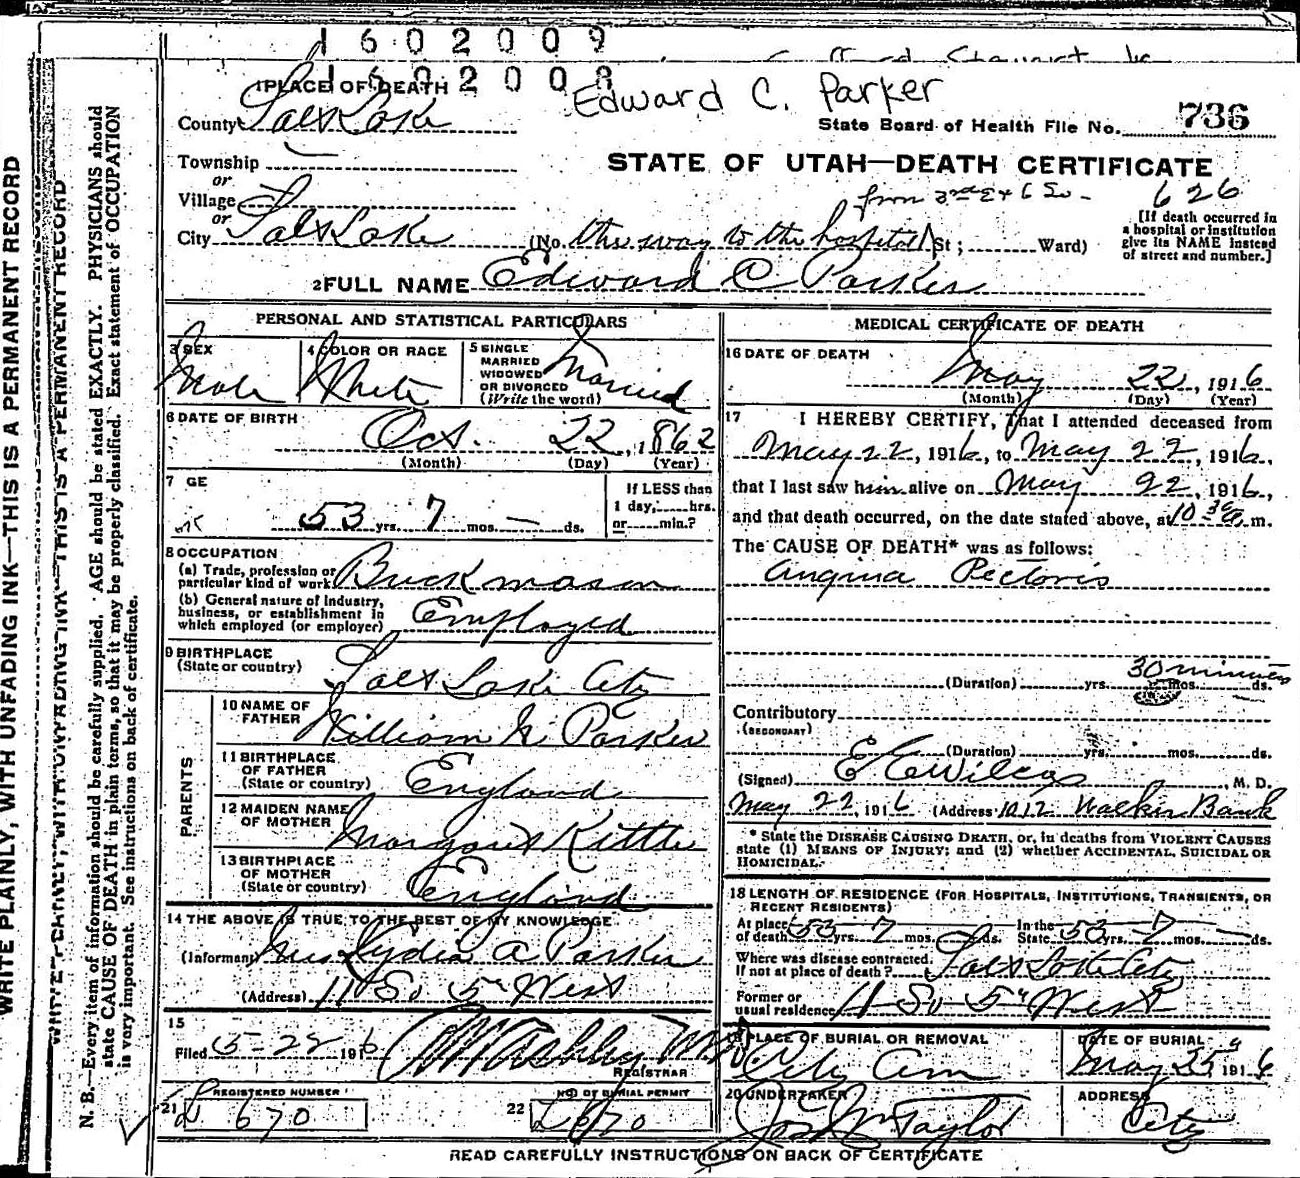 1602009
1602008
Edward C. Parker
1 PLACE OF DEATH
County Salt Lake
State Board of Health File No. 736
Township
STATE OF UTAH—DEATH CERTIFICATE
or
Village
from 3rd E & 6 So -
626
or
City Salt Lake (No. the way to the hospital St; Ward)
[If death occurred in
a hospital or institution
give its NAME instead
of street and number.]
2 FULL NAME Edward C Parker
PERSONAL AND STATISTICAL PARTICULARS
3 SEX
Male
4 COLOR OR RACE
White
5 SINGLE
MARRIED
WIDOWED
OR DIVORCED
(Write the word)
Married
6 DATE OF BIRTH
Oct. 22, 1862
(Month) (Day) (Year)
7 GE
53 yrs. 7 mos. — ds.
If LESS than
1 day, hrs.
or min.?
8 OCCUPATION
(a) Trade, profession or
particular kind of work Brick mason
(b) General nature of industry,
business, or establishment in
which employed (or employer) Employed
9 BIRTHPLACE
(State or country) Salt Lake City
PARENTS
10 NAME OF
FATHER William Parker
11 BIRTHPLACE
OF FATHER
(State or country) England
12 MAIDEN NAME
OF MOTHER Margaret Kittle
13 BIRTHPLACE
OF MOTHER
(State or country) England
14 THE ABOVE IS TRUE TO THE BEST OF MY KNOWLEDGE
(Informant) Mrs Lydia A Parker
(Address) 11 So 5" West
15
Filed 5-22 1916
REGISTRAR
21 REGISTERED NUMBER
670
22 NO OF BURIAL PERMIT
670
MEDICAL CERTIFICATE OF DEATH
16 DATE OF DEATH
May 22, 1916
(Month) (Day) (Year)
17 I HEREBY CERTIFY, That I attended deceased from
May 22, 1916, to May 22, 1916,
that I last saw him alive on May 22, 1916,
and that death occurred, on the date stated above, at 10 30 a m.
The CAUSE OF DEATH* was as follows:
Angina Pectoris
30 minutes
(Duration) yrs. mos. ds.
Contributory
(SECONDARY)
(Duration) yrs. mos. ds.
(Signed) E C Wilcox, M. D.
May 22, 1916 (Address) 1012 Walker Bank
* State the DISEASE CAUSING DEATH, or, in deaths from VIOLENT CAUSES
state (1) MEANS OF INJURY; and (2) whether ACCIDENTAL, SUICIDAL OR
HOMICIDAL.
18 LENGTH OF RESIDENCE (FOR HOSPITALS, INSTITUTIONS, TRANSIENTS, OR
RECENT RESIDENTS)
At place
of death 53 yrs. 7 mos. ds. In the
State 53 yrs. 7 mos. ds.
Where was disease contracted,
If not at place of death? Salt Lake City
Former or
usual residence 11 So 5" West
19 PLACE OF BURIAL OR REMOVAL
City Cem
DATE OF BURIAL
May 25, 1916
20 UNDERTAKER
Jos Wm Taylor
ADDRESS
City
READ CAREFULLY INSTRUCTIONS ON BACK OF CERTIFICATE
WRITE PLAINLY, WITH UNFADING INK—THIS IS A PERMANENT RECORD
WRITE PLAINLY, WITH UNFADING INK—THIS IS A PERMANENT RECORD
N. B.—Every item of information should be carefully supplied. AGE should be stated EXACTLY. PHYSICIANS should
state CAUSE OF DEATH in plain terms, so that it may be properly classified. Exact statement of OCCUPATION
is very important. See instructions on back of certificate.